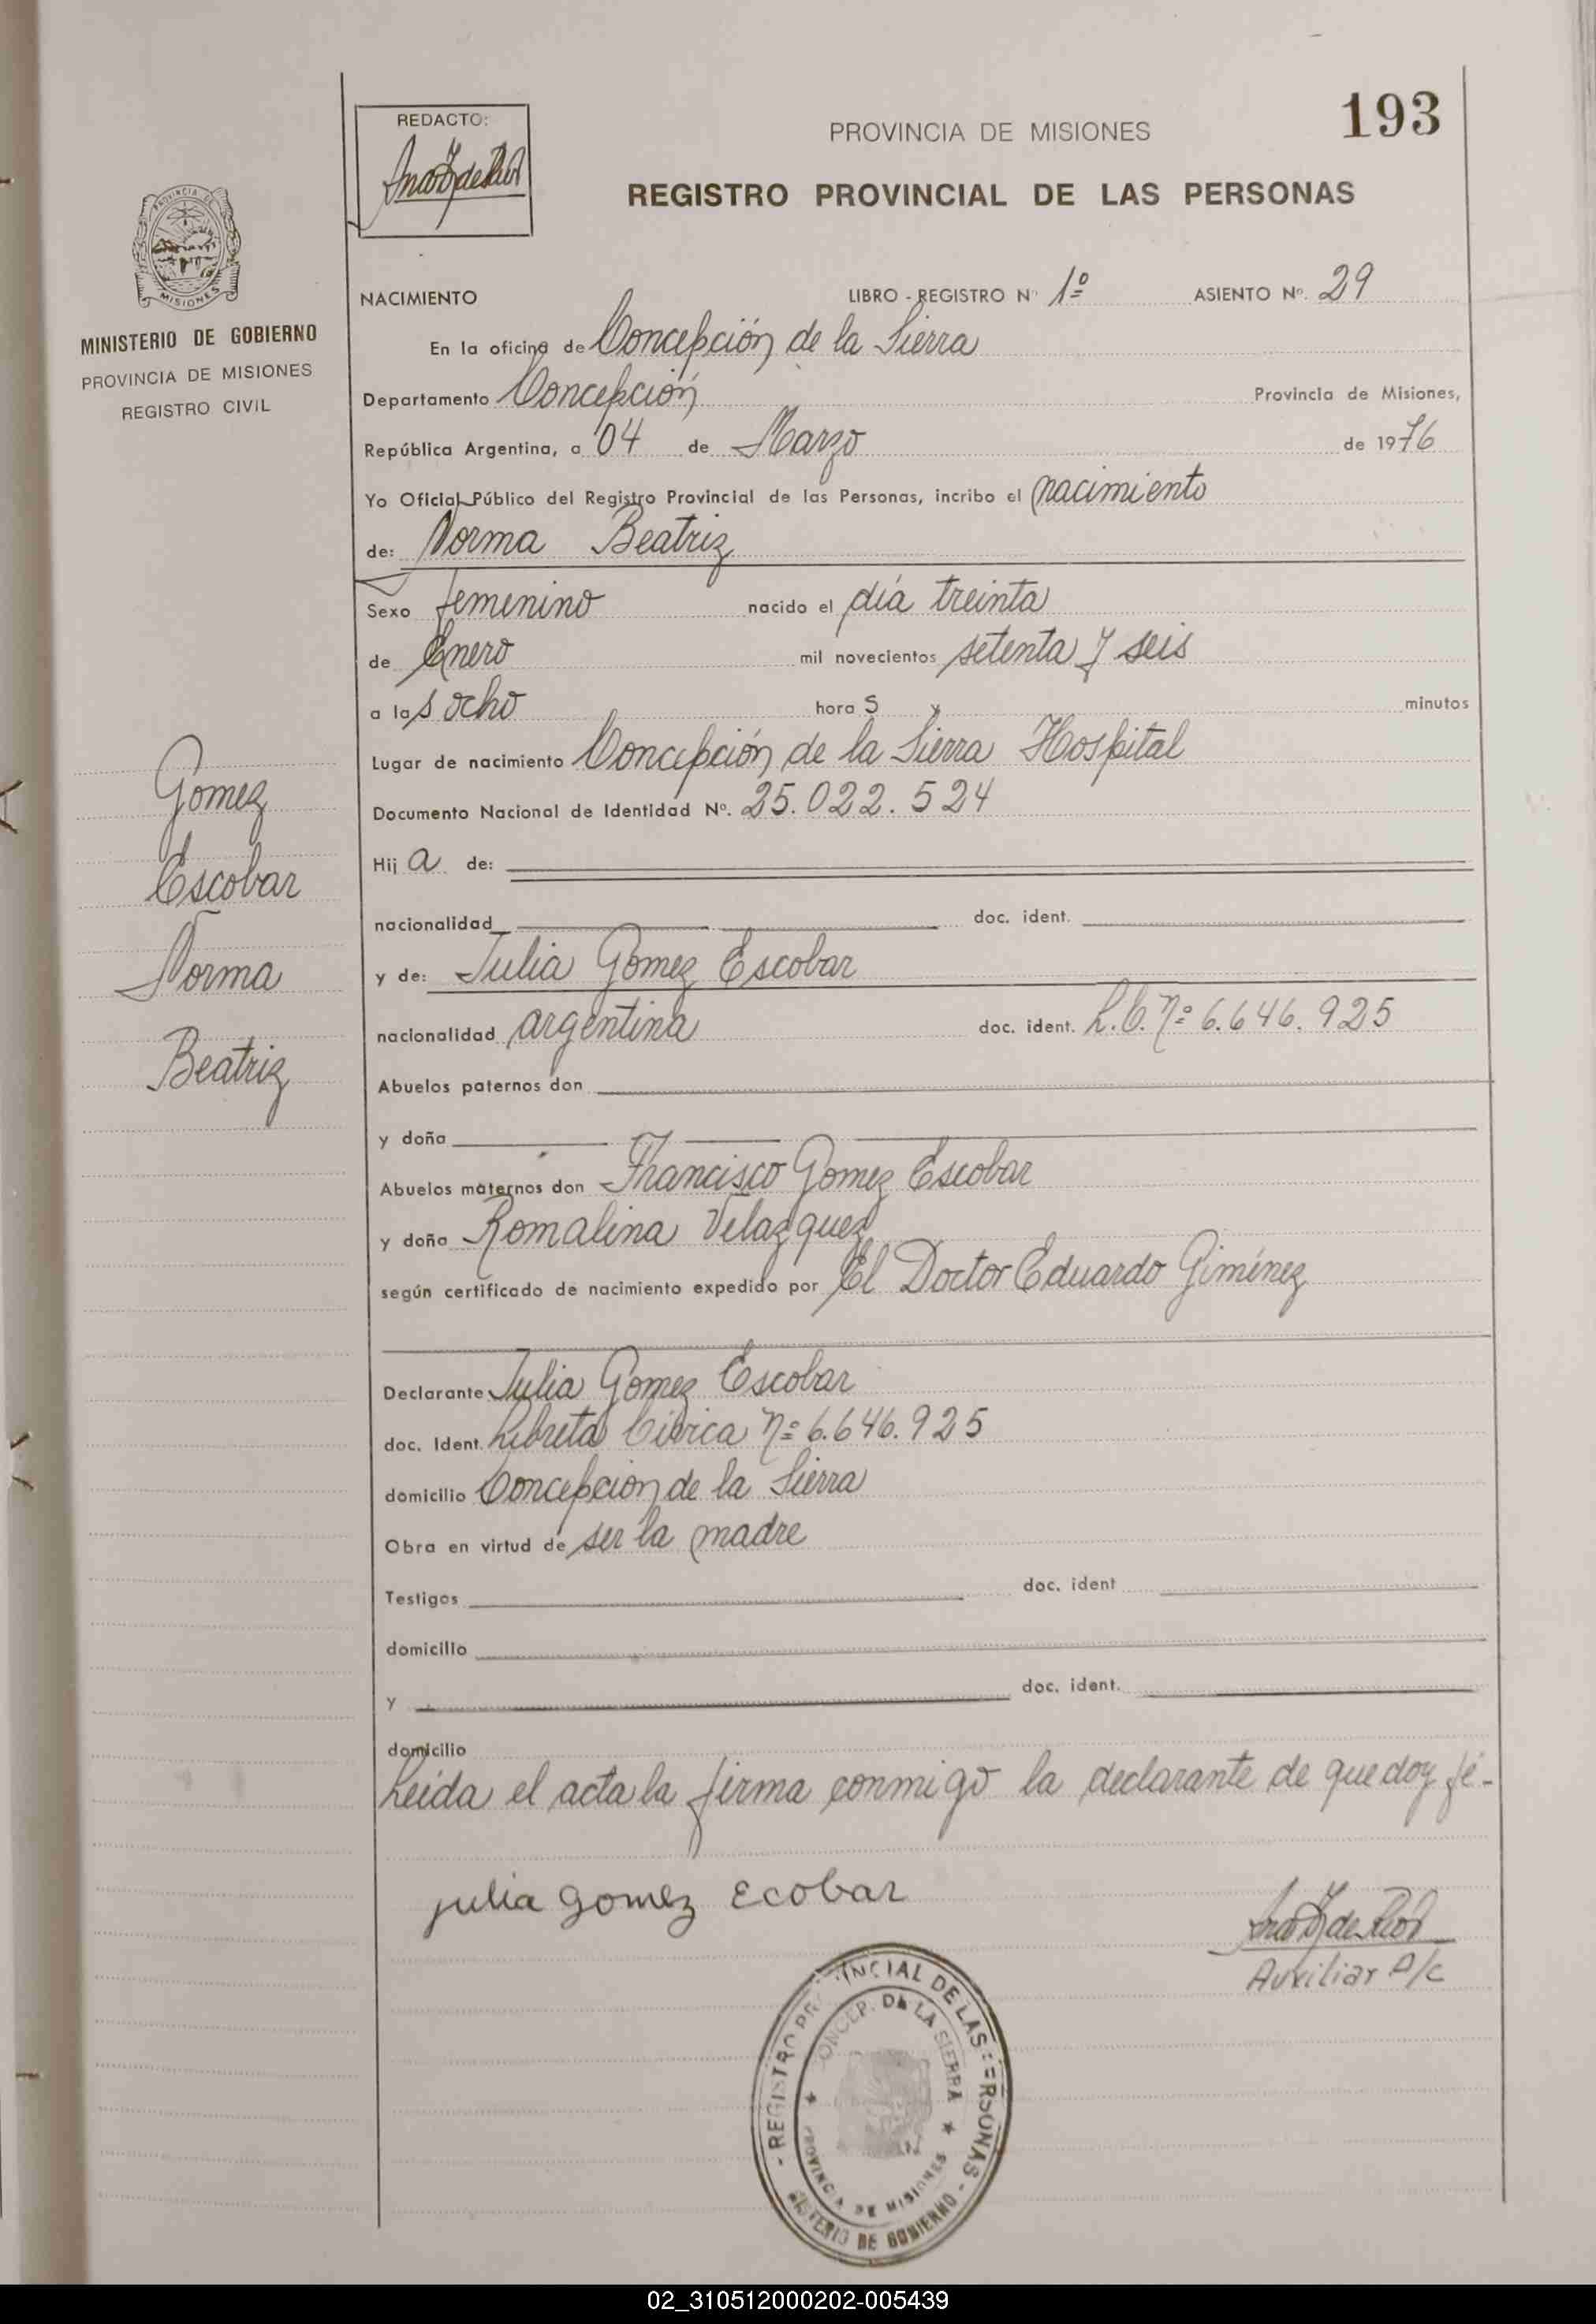 193
REDACTO:
PROVINCIA DE MISIONES
REGISTRO PROVINCIAL DE LAS PERSONAS
PROVINCIA DE
MISIONES
MINISTERIO DE GOBIERNO
PROVINCIA DE MISIONES
REGISTRO CIVIL
NACIMIENTO LIBRO - REGISTRO Nº 1º ASIENTO Nº. 29
En la oficina de Concepción de la Sierra
Departamento Concepción Provincia de Misiones,
República Argentina, a 04 de Marzo de 1976
Yo Oficial Público del Registro Provincial de las Personas, incribo el nacimiento
de: Norma Beatriz
Sexo femenino nacido el día treinta
de Enero mil novecientos setenta y seis
a las ocho horas y minutos
Lugar de nacimiento Concepción de la Sierra Hospital
Documento Nacional de Identidad Nº. 25.022.524
Hija de:
nacionalidad doc. ident.
y de: Julia Gomez Escobar
nacionalidad argentina doc. ident. L.C. nº 6.646.925
Abuelos paternos don
y doña
Abuelos maternos don Francisco Gomez Escobar
y doña Romalina Velazquez
según certificado de nacimiento expedido por El Doctor Eduardo Giménez
Declarante Julia Gomez Escobar
doc. Ident. Libreta Cívica nº 6.646.925
domicilio Concepción de la Sierra
Obra en virtud de ser la madre
Testigos doc. ident
domicilio
y doc. ident.
domicilio
Leída el acta la firma conmigo la declarante de que doy fé-
Gomez
Escobar
Norma
Beatriz
julia gomez Ecobar
Auxiliar A/c
- REGISTRO PR INCIAL DE LAS ERSONAS -
ONCEP. DE LA SIERRA
PROVINCIA DE MISIONES
ISTERIO DE GOBIERNO
02_310512000202-005439